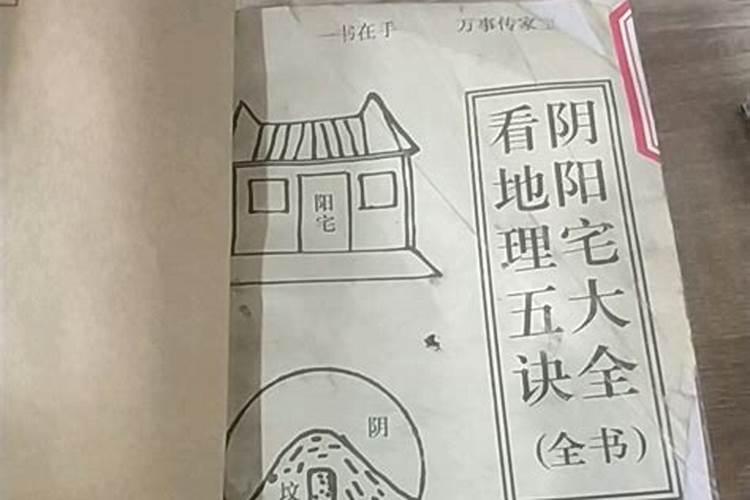 一书在手 万事传家宝
阴阳宅大全
看地理五诀
(全书)
阳宅
阴
坟